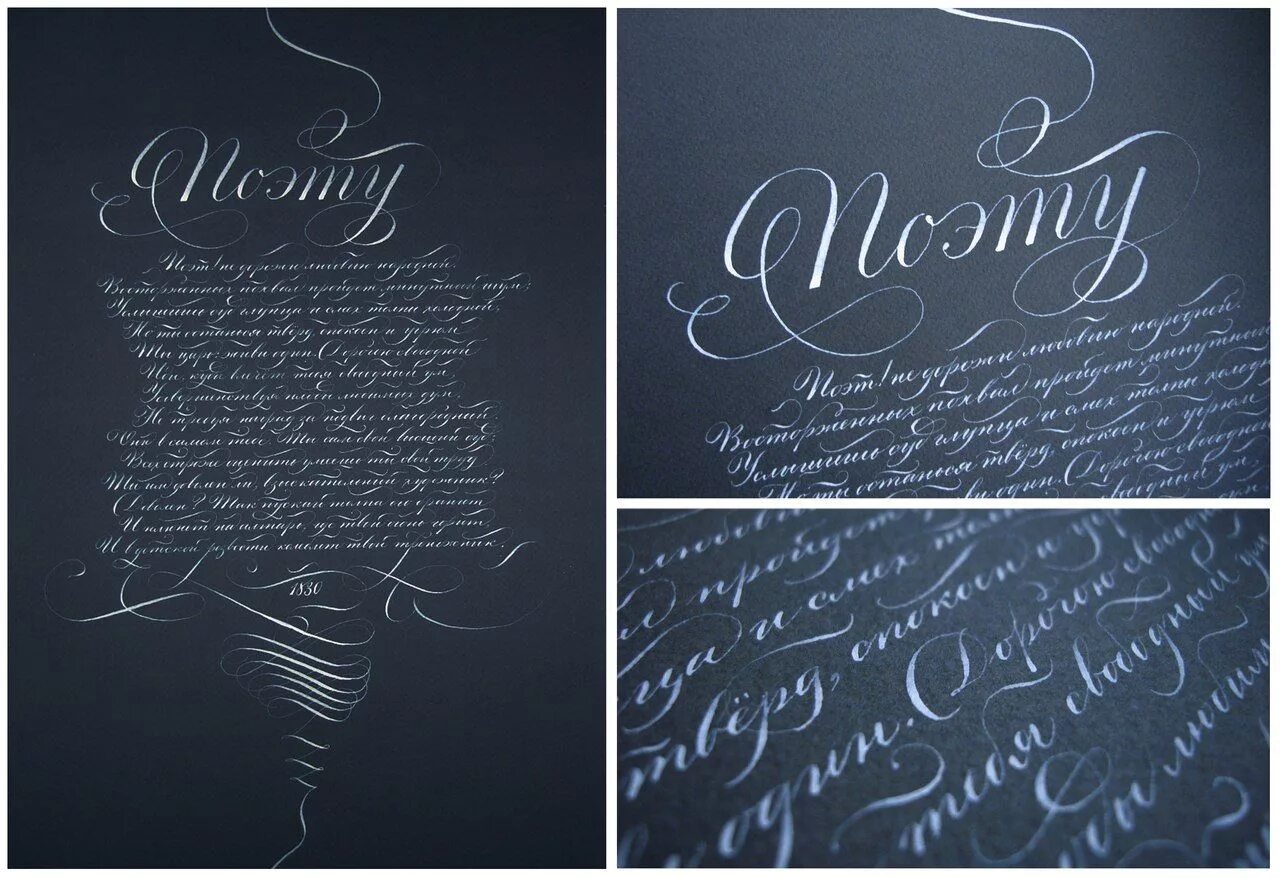 Поэту
Поэт! не дорожи любовию народной.
Восторженных похвал пройдет минутный шум;
Услышишь суд глупца и смех толпы холодной,
Но ты останься твёрд, спокоен и угрюм.
Ты царь: живи один. Дорогою свободной
Иди, куда влечёт тебя свободный ум,
Усовершенствуя плоды любимых дум,
Не требуя наград за подвиг благородный.
Они в самом тебе. Ты сам свой высший суд;
Всех строже оценить умеешь ты свой труд.
Ты им доволен ли, взыскательный художник?
Доволен? Так пускай толпа его бранит
И плюет на алтарь, где твой огонь горит,
И в детской резвости колеблет твой треножник.
1830
Поэту
Поэт! не дорожи любовию народной.
Восторженных похвал пройдет минутный
Услышишь суд глупца и смех толпы холодн
Но ты останься твёрд, спокоен и угрюм
ви один. Дорогою свободн
свободный ум,
любови
пройдет
и смех тол
твёрд, спокоен и угр
один. Дорогою свобод
тебя свободный ум
ды любим